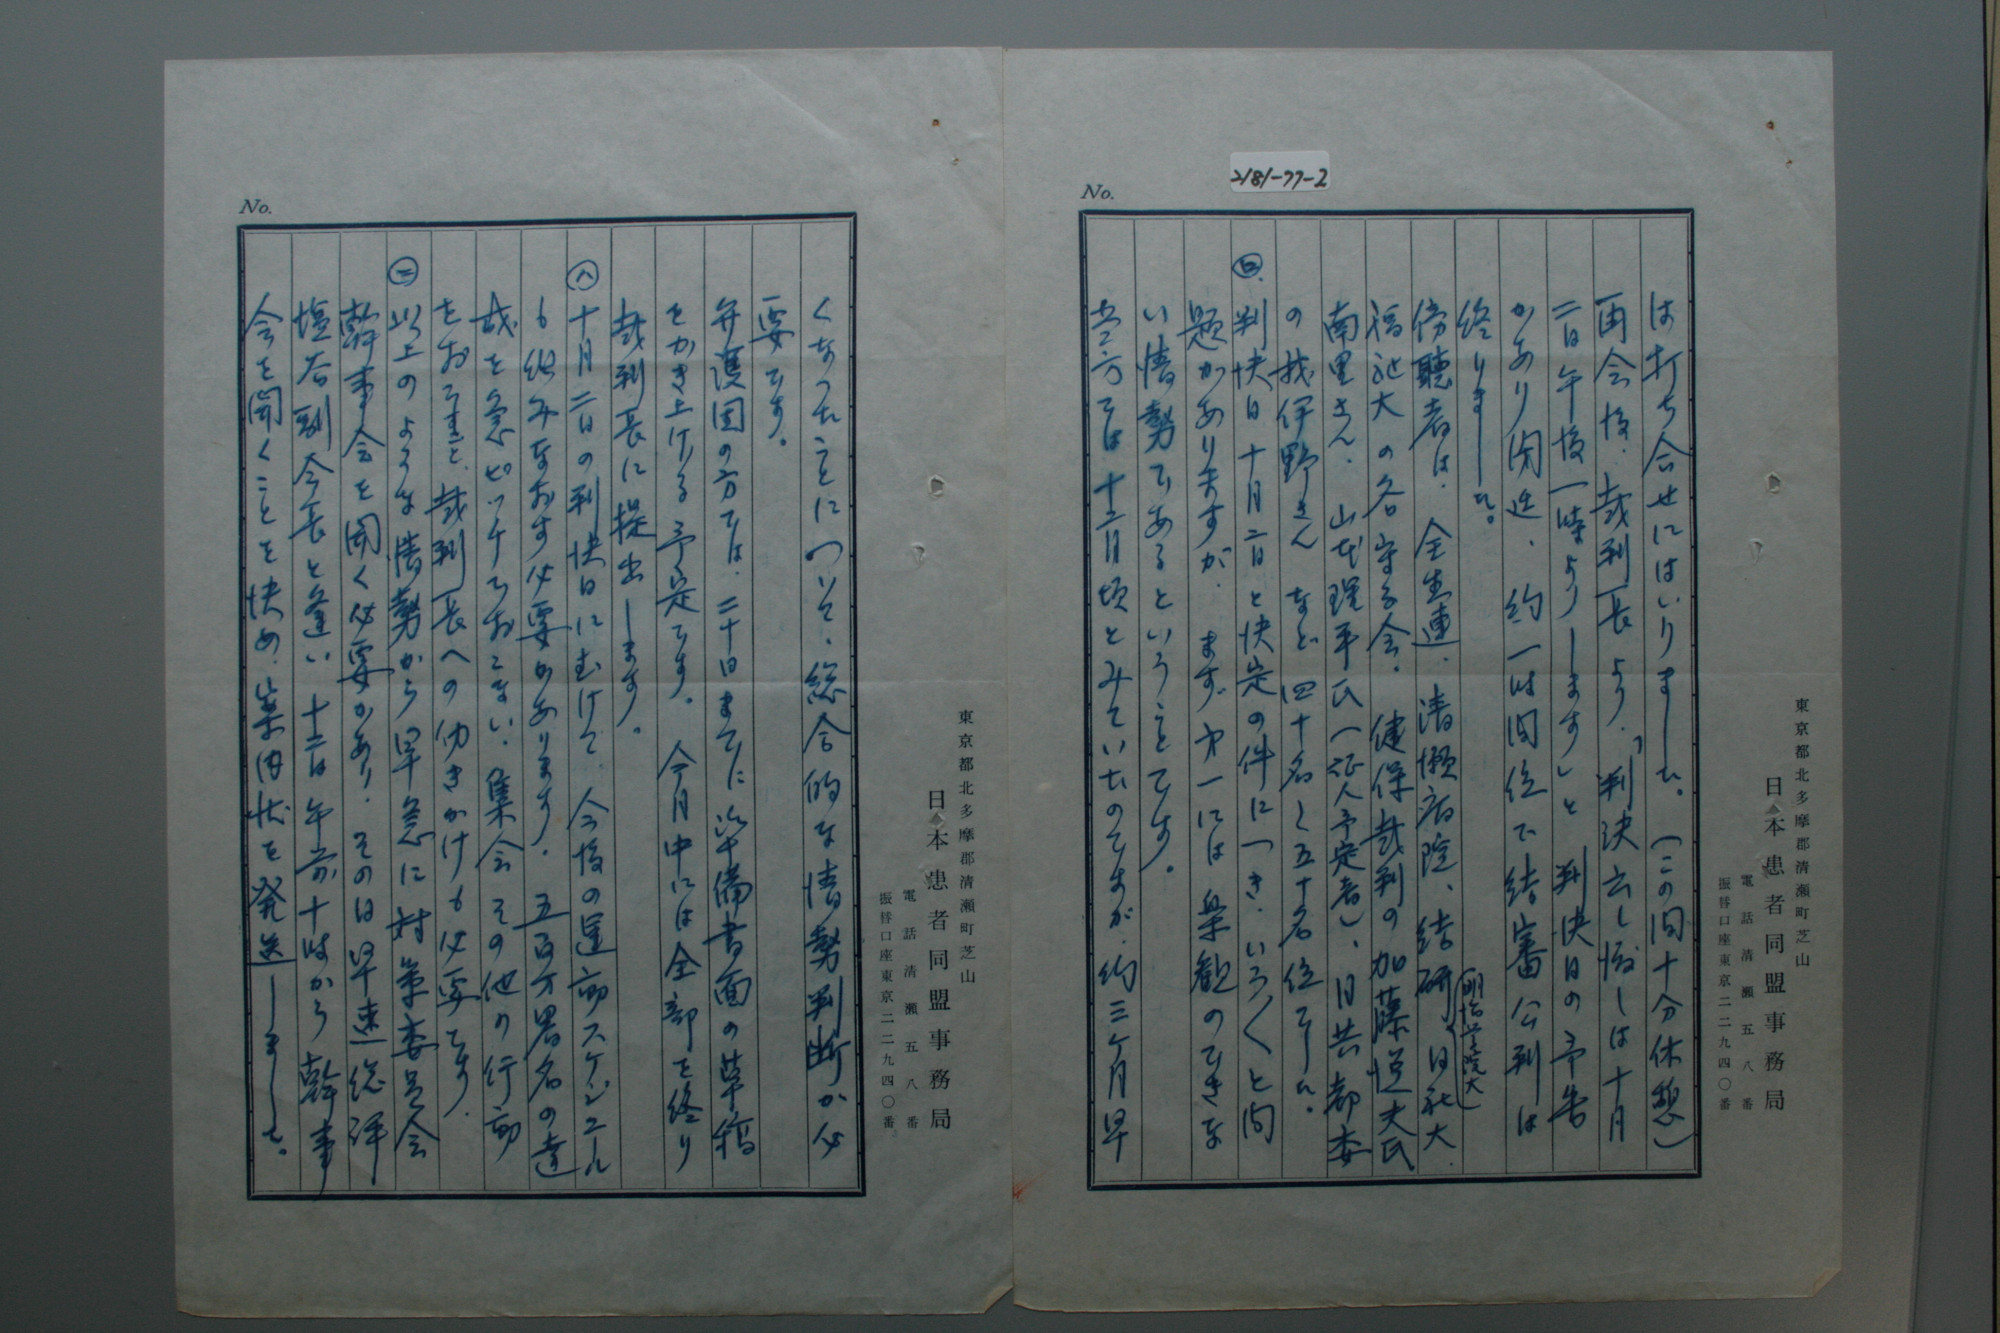 2181-77-2
No.
は打ち合せにはいりました。（この間十分休憩）
再会後、裁判長より、「判決云し渡しは十月
二日午後一時よりします」と 判決日の予告
があり閉廷、約一時間位で結審公判は
終りました。
傍聴者は、全生連、清瀬病院、結研、日社大、
（明治学院大）
福祉大の各守る会、健保裁判の加藤悦夫氏
南里さん、山本理平氏（証人予定者）、日共都委
の我伊野さん など四十名～五十名位でした。
㋺、判決日十月二日と決定の件につき、いろ〱と問
題がありますが、まず才一には楽観のできな
い情勢であるということです。
当方では十二月頃とみていたのですが、約三ケ月早
東京都北多摩郡清瀬町芝山
日本患者同盟事務局
電話清瀬五八番
振替口座東京二二九四〇番
No.
くなったことについて、総合的な情勢判断が必
要です。
弁護団の方では、二十日までに準備書面の草稿
をかき上げる予定です。今月中には全部を終り
裁判長に提出します。
㋩十月二日の判決日にむけて、今後の運動スケジュール
も組みなおす必要があります。五百万署名の達
成を急ピッチでおこない、集会その他の行動
をおこすこと、裁判長への仂きかけも必要です。
㊁以上のような情勢から早急に対策委員会
幹事会を開く必要があり、その日早速総評
塩谷副会長と逢い十二日午前十時から幹事
会を開くことを決め、案内状を発送しました。
東京都北多摩郡清瀬町芝山
日本患者同盟事務局
電話清瀬五八番
振替口座東京二二九四〇番